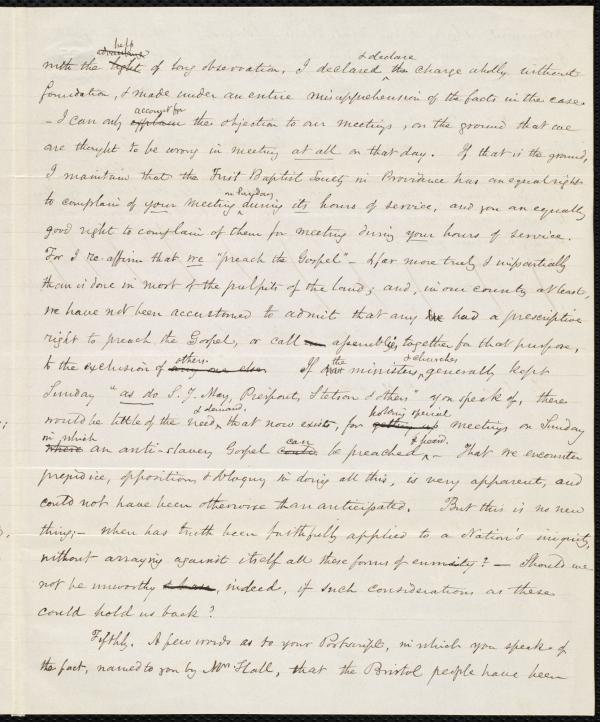 help
with the light of long observation, I declared & declare the charge wholly without
foundation, & made under an entire misapprehension of the facts in the case.
– I can only explain account for the objection to our meetings, on the ground that we
are thought to be wrong in meeting at all on that day. If that is the ground,
I maintain that the First Baptist Society in Providence has an equal right
to complain of your meeting on Sunday during its hours of service, and you an equally
good right to complain of them for meeting during your hours of service.
For I re-affirm that we "preach the Gospel" – & far more truly & impartially
than is done in most of the pulpits of the land; and, in our county at least,
we have not been accustomed to admit that any had a prescriptive
right to preach the Gospel, or call assemblies together for that purpose,
to the exclusion of any one else others. If the ministers & churches generally kept
Sunday "as do S. J. May, Pierpont, Stetson & others" you speak of, there
would be little of the need & demand that now exists, for getting up holding special meetings on Sunday
where in which an anti-slavery Gospel could can be preached & heard. – That we encounter
prejudice, opposition, & obloquy in doing all this, is very apparent, and
could not have been otherwise than anticipated. But this is no new
thing; – when has truth been faithfully applied to a Nation's iniquity,
without arraying against itself all these forms of enmity? – Should we
not be unworthy indeed, if such considerations as these
could hold us back?
Fifthly. A few words as to your Postscript, in which you speak of
the fact, named to you by Mrs. Hall, that the Bristol people have been